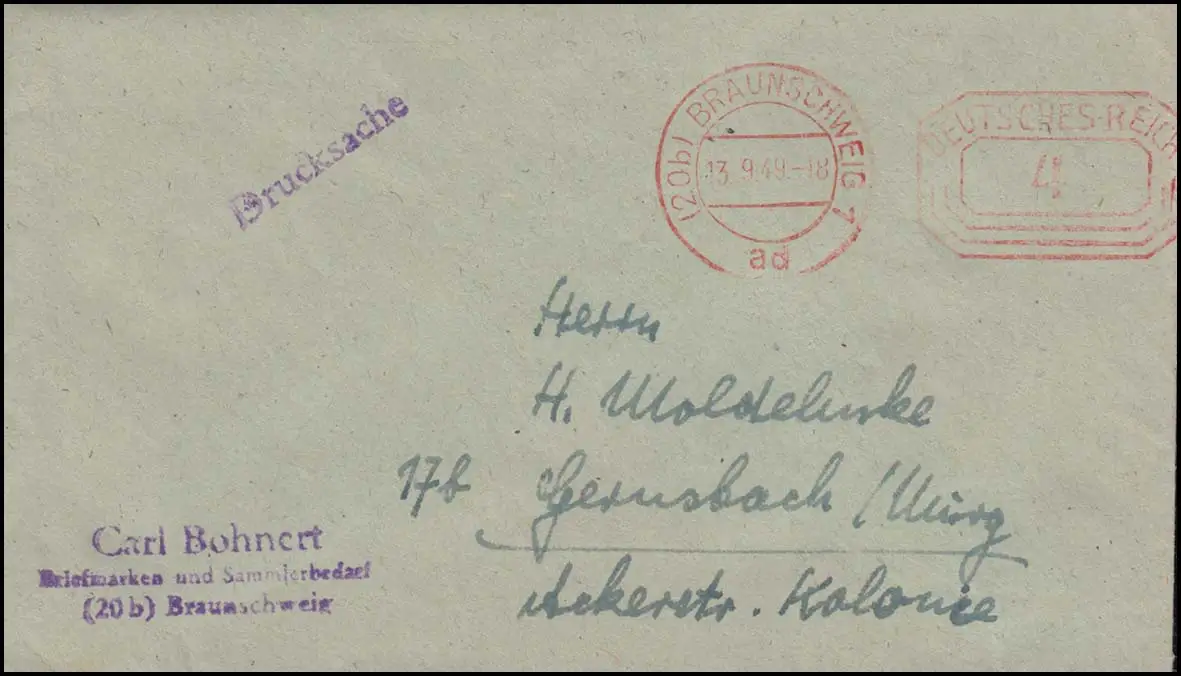 Drucksache
(20b) BRAUNSCHWEIG 1
13.9.49.-18
ad
DEUTSCHES-REICH
4
Herrn
H. Moldehnke
17b Gernsbach / Murg
Ackerstr. Kolonie
Carl Bohnert
Briefmarken und Sammlerbedarf
(20b) Braunschweig